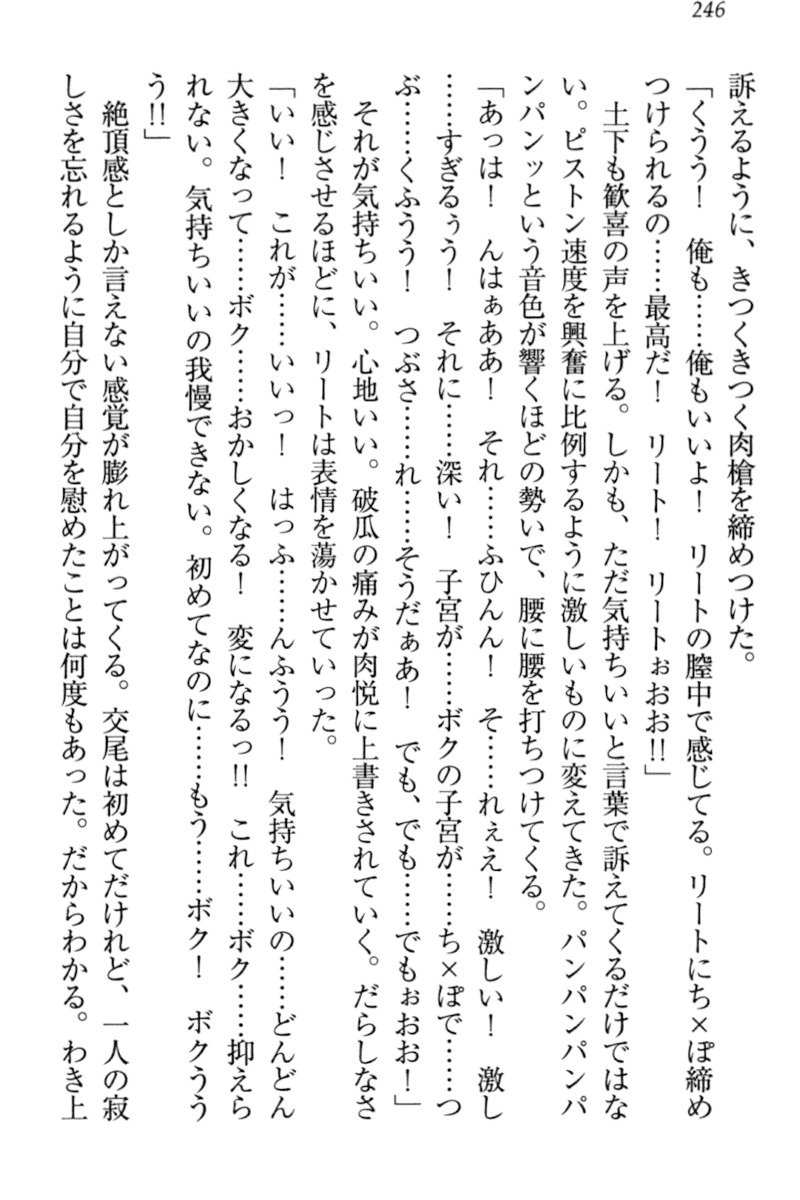 246
訴えるように、きつくきつく肉槍を締めつけた。
「くうう！　俺も……俺もいいよ！　リートの膣中で感じてる。リートにち×ぽ締め
つけられるの……最高だ！　リート！　リートぉおお!!」
　土下も歓喜の声を上げる。しかも、ただ気持ちいいと言葉で訴えてくるだけではな
い。ピストン速度を興奮に比例するように激しいものに変えてきた。パンパンパンパ
ンパンッという音色が響くほどの勢いで、腰に腰を打ちつけてくる。
「あっは！　んはぁああ！　それ……ふひんん！　そ……れぇえ！　激しい！　激し
……すぎるぅう！　それに……深い！　子宮が……ボクの子宮が……ち×ぽで……つ
ぶ……くふうう！　つぶさ……れ……そうだぁあ！　でも、でも……でもぉおお！」
　それが気持ちいい。心地いい。破瓜の痛みが肉悦に上書きされていく。だらしなさ
を感じさせるほどに、リートは表情を蕩かせていった。
「いい！　これが……いいっ！　はっふ……んふうう！　気持ちいいの……どんどん
大きくなって……ボク……おかしくなる！　変になるっ!!　これ……ボク……抑えら
れない。気持ちいいの我慢できない。初めてなのに……もう……ボク！　ボクうう
う!!」
　絶頂感としか言えない感覚が膨れ上がってくる。交尾は初めてだけれど、一人の寂
しさを忘れるように自分で自分を慰めたことは何度もあった。だからわかる。わき上